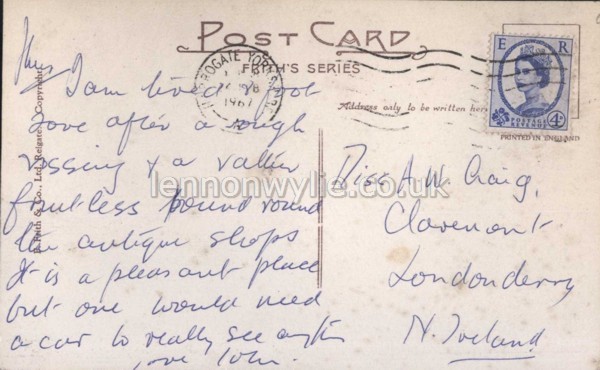 POST CARD
FRITH'S SERIES
HARROGATE YORKSHIRE
1967
E R
4D
POSTAGE REVENUE
Address only to be written here
PRINTED IN ENGLAND
F. Frith & Co., Ltd., Reigate. Copyright.
Thurs
I am tired & foot
sore after a rough
crossing & a rather
fruitless pound round
the antique shops
It is a pleasant place
but one would need
a car to really see anything
love John.
Miss A W. Craig,
Claremont.
Londonderry
N. Ireland
lennonwylie.co.uk